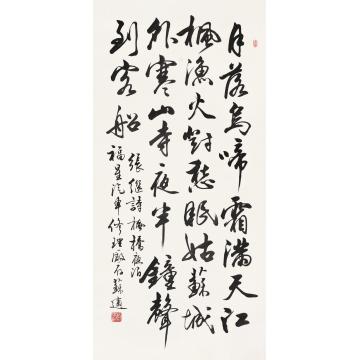 月落烏啼霜滿天江
楓漁火對愁眠姑蘇城
外寒山寺夜半鐘聲
到客船
張繼詩楓橋夜泊
福星汽車修理廠